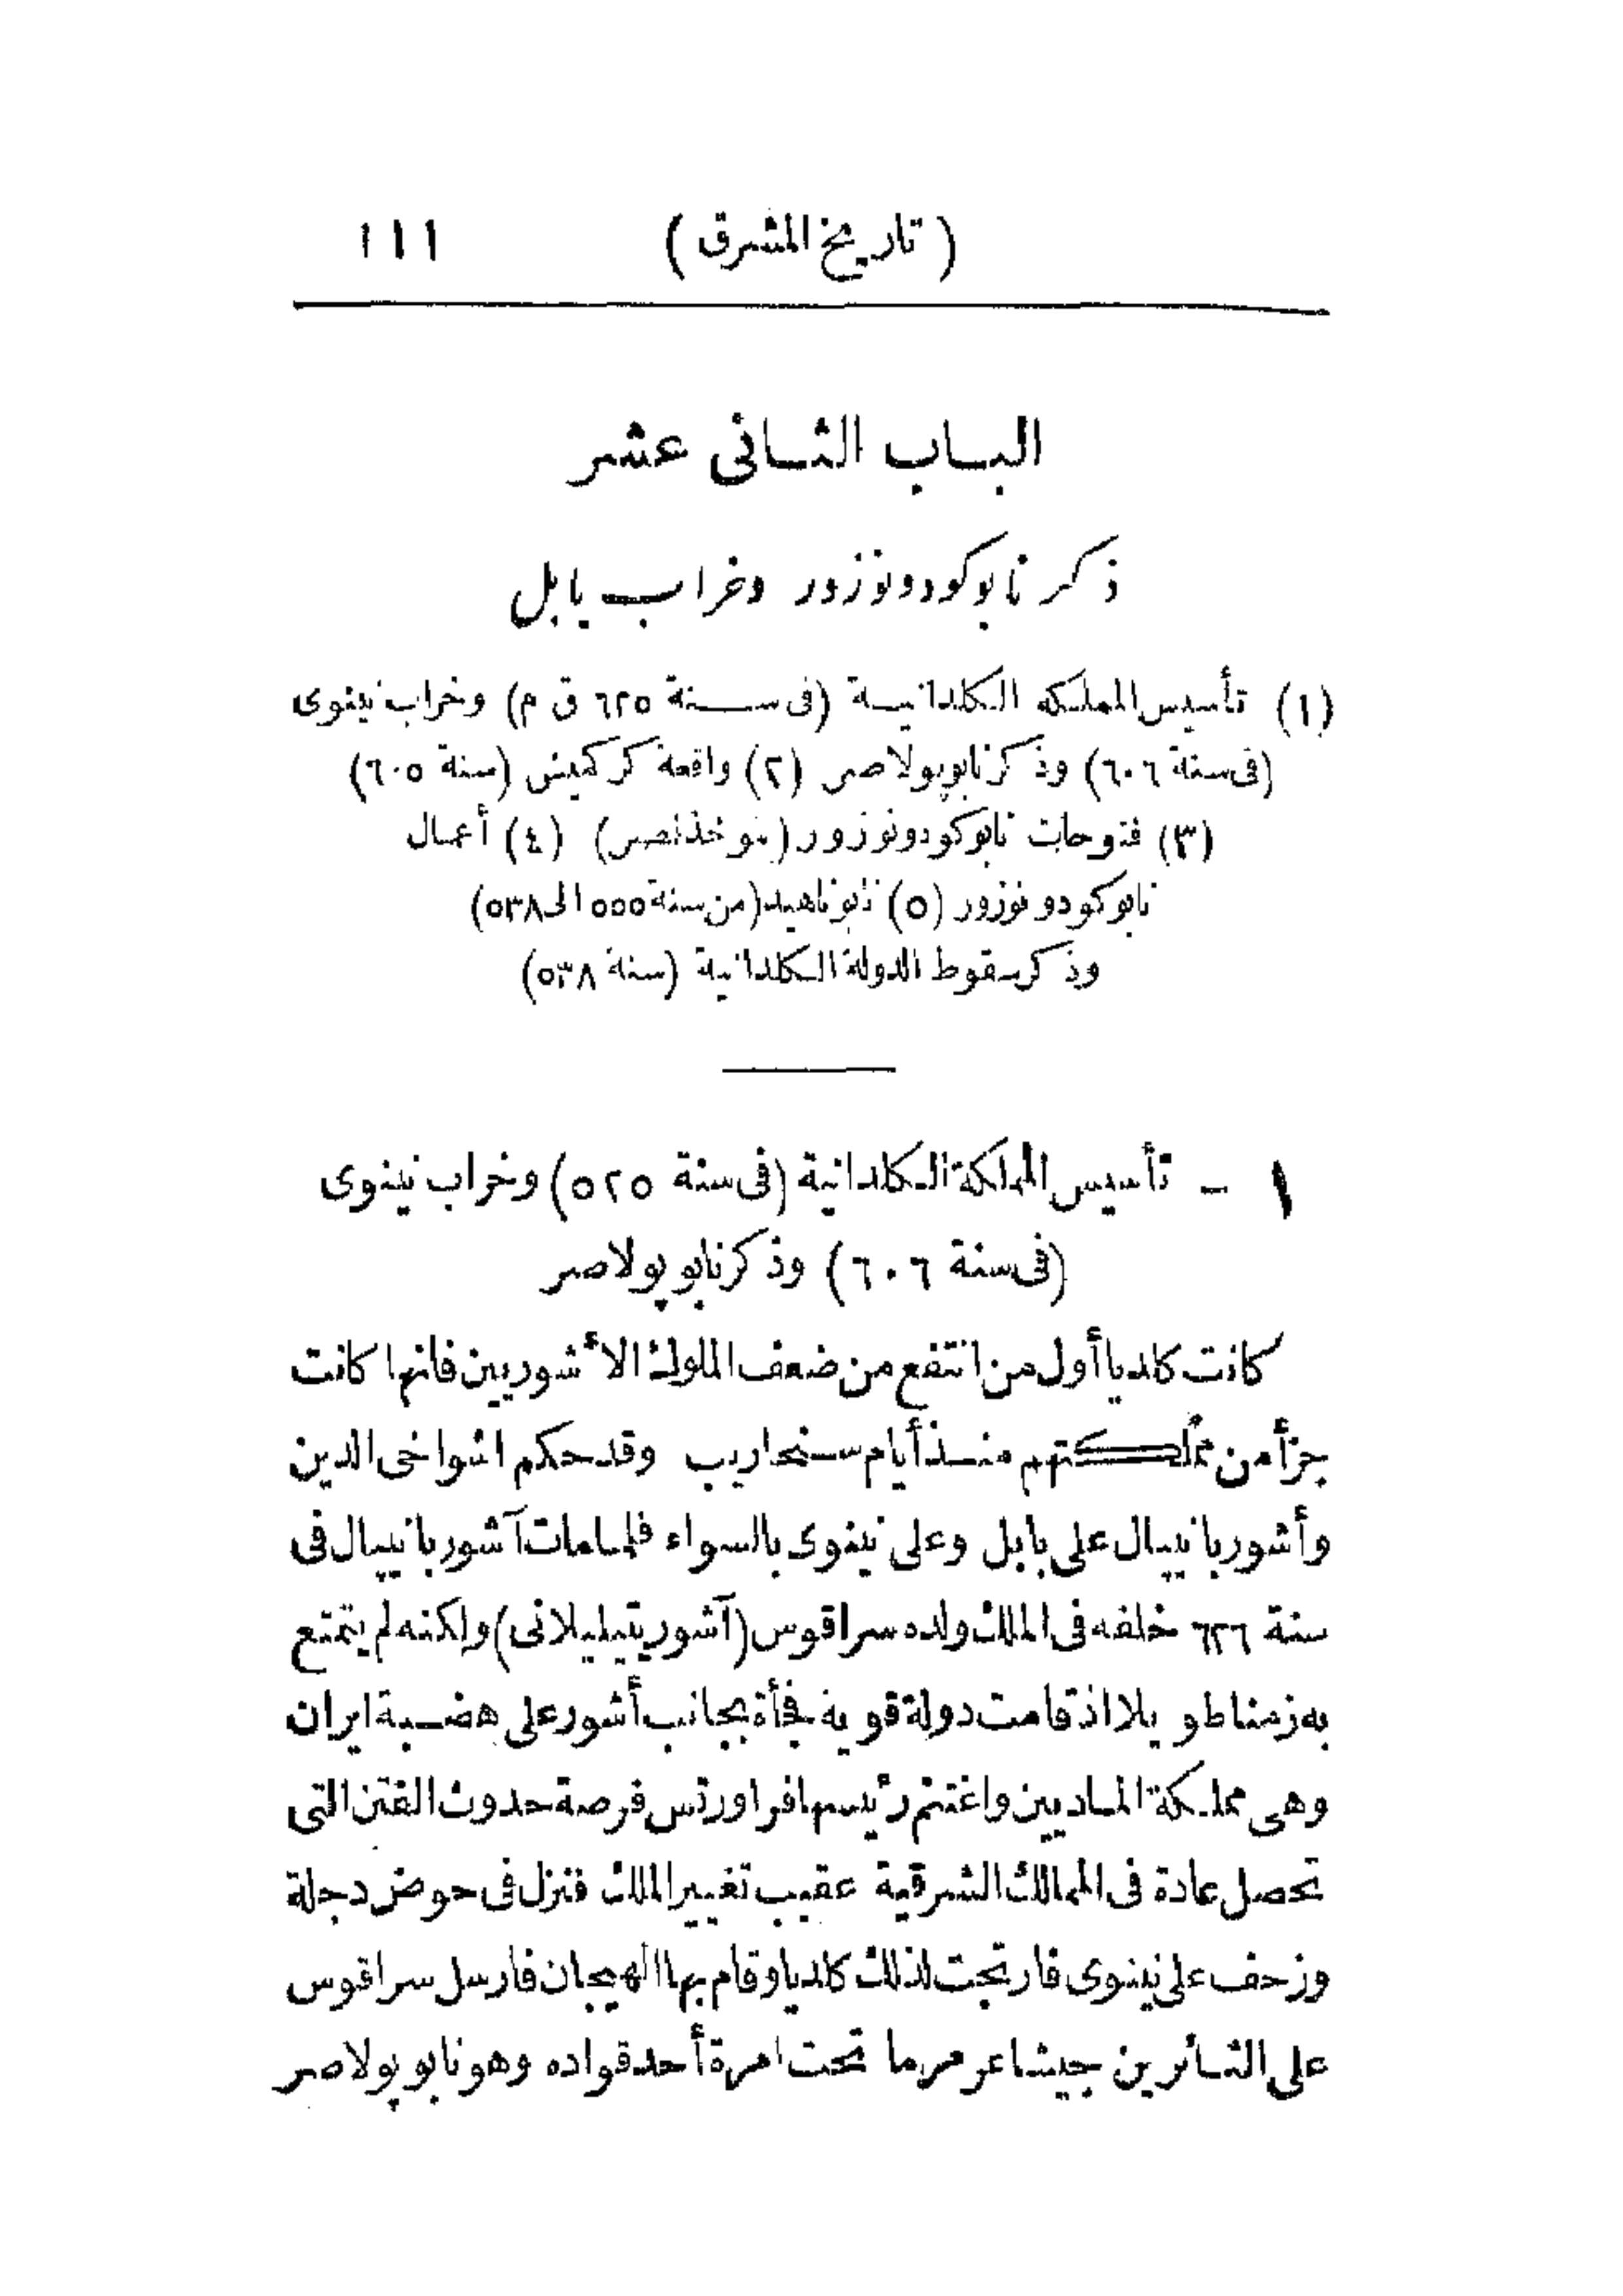 (تاريخ المشرق) ١١١
الباب الثانى عشر
ذكر نابوكودونوزور وخراب بابل
(١) تأسيس المملكه الكلدانية (فى سنة ٦٢٥ ق م) وخراب نينوى
(فى سنة ٦٠٦) وذكر نابوپولاصر (٢) واقعة كركميش (سنة ٦٠٥)
(٣) فتوحات نابوكودونوزور (بنوخذنصر) (٤) أعمال
نابوكودونوزور (٥) نابوناهيد (من سنة ٥٥٥ الى ٥٣٨)
وذكر سقوط الدولة الكلدانية (سنة ٥٣٨)
١ - تأسيس المملكة الكلدانية (فى سنة ٥٢٥) وخراب نينوى
(فى سنة ٦٠٦) وذكر نابوپولاصر
كانت كلديا أول من انتفع من ضعف الملوك الأشوريين فانها كانت
جزأ من مملكتهم منذ أيام سنحاريب وقد حكم اشواخى الدين
وأشوربانيپال على بابل وعلى نينوى بالسواء فلما مات آشوربانيپال فى
سنة ٦٢٦ خلفه فى الملك ولده سراقوس (آشوريتيليلانى) ولكنه لم يتمتع
به زمنا طويلا اذ قامت دولة قوية فجأة بجانب أشور على هضبة ايران
وهى مملكة الماديين واغتنم رئيسها فراورتس فرصة حدوث الفتن التى
تحصل عادة فى الممالك الشرقية عقيب تغيير الملك فنزل فى حوض دجلة
وزحف على نينوى فارتجت لذلك كلديا وقام بها الهيجان فارسل سراقوس
على الثائرين جيشا عرمرما تحت امرة أحد قواده وهو نابوپولاصر